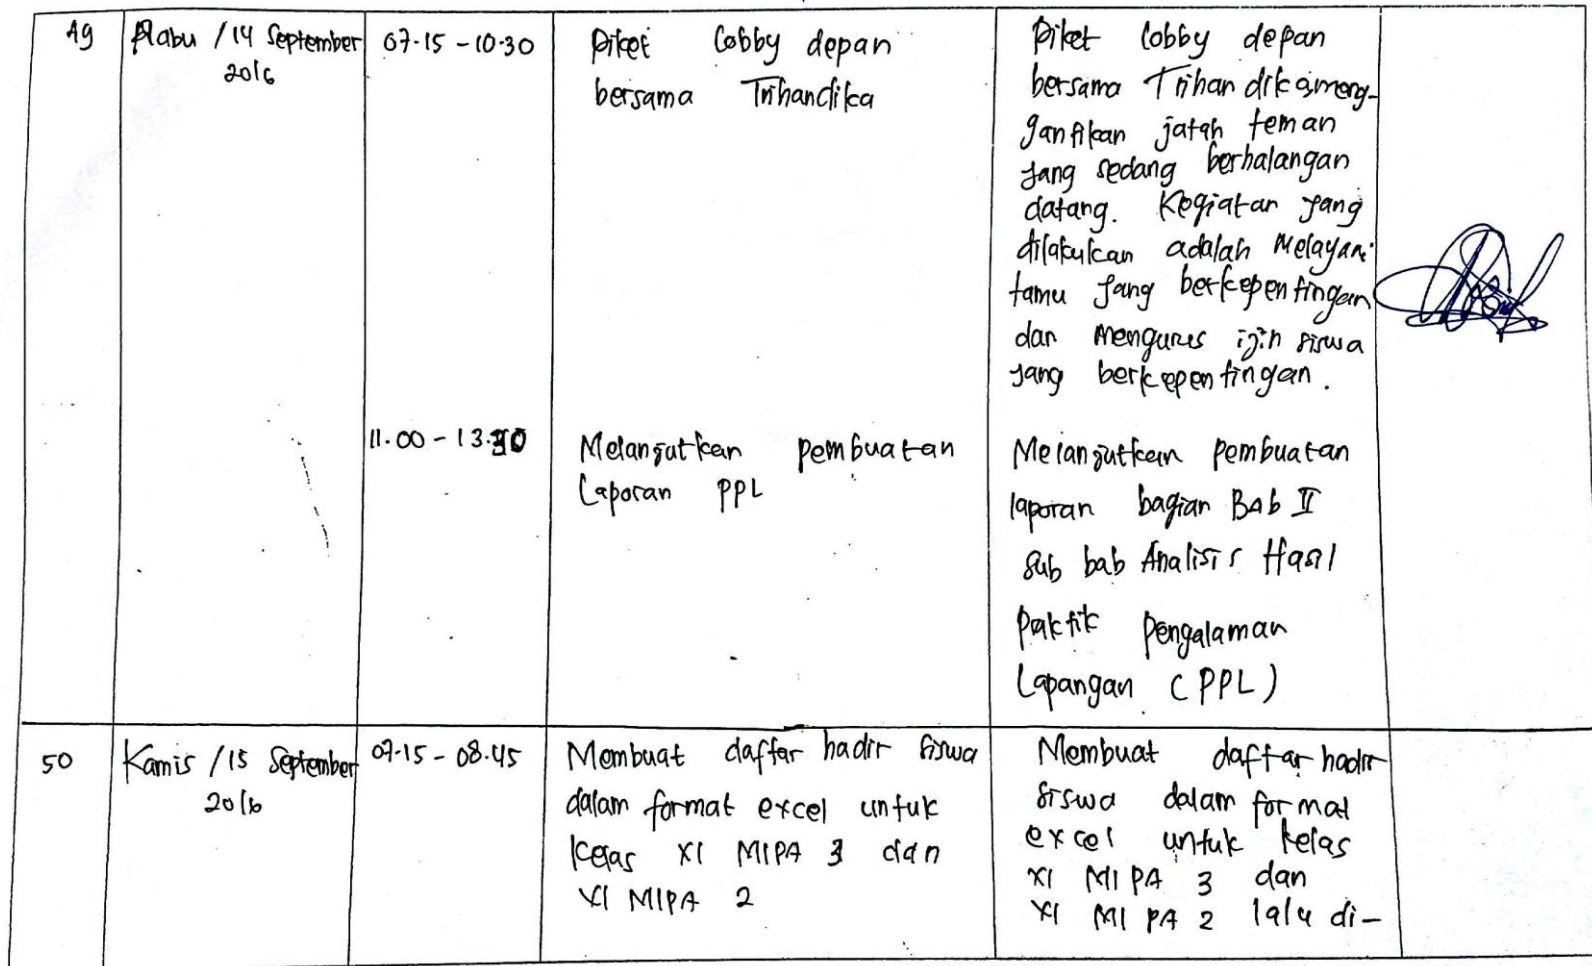 49
Rabu / 14 September
2016
07.15 - 10.30
Piket Lobby depan
bersama Trihandika
Piket lobby depan
bersama Trihandika meng-
gantikan jatah teman
yang sedang berhalangan
datang. Kegiatan yang
dilakukan adalah Melayani
tamu yang berkepentingan
dan mengurus izin siswa
yang berkepentingan.
11.00 - 13.30
Melanjutkan pembuatan
Laporan PPL
Melanjutkan pembuatan
laporan bagian Bab II
sub bab Analisis Hasil
Paktik Pengalaman
Lapangan (PPL)
50
Kamis / 15 September
2016
07.15 - 08.45
Membuat daftar hadir siswa
dalam format excel untuk
kelas XI MIPA 3 dan
XI MIPA 2
Membuat daftar hadir
siswa dalam format
excel untuk kelas
XI MIPA 3 dan
XI MIPA 2 lalu di-